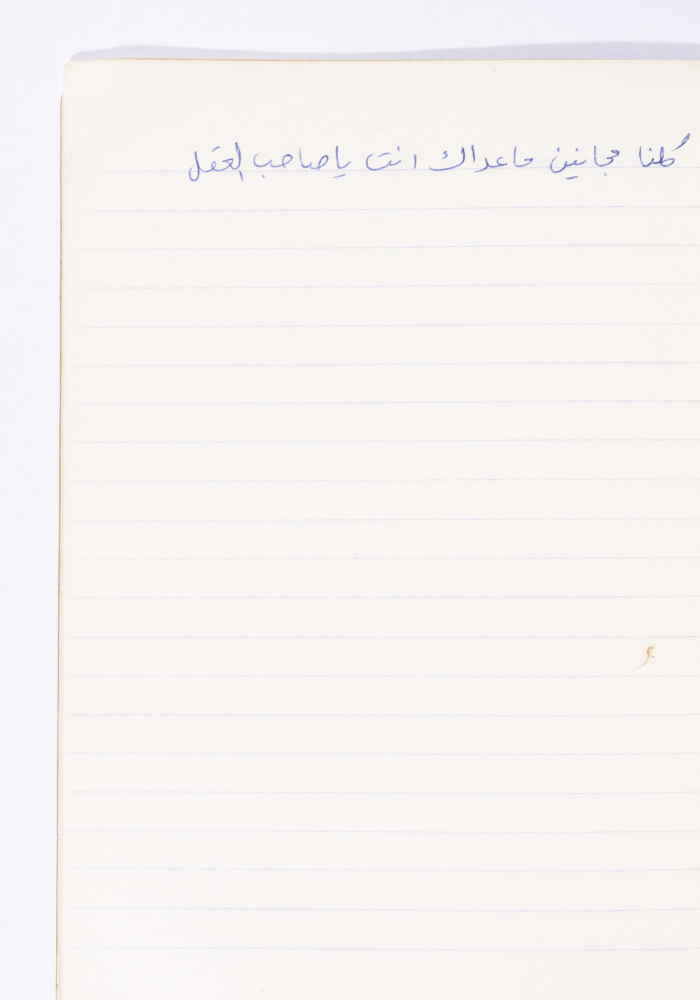 كلنا مجانين ماعداك انت ياصاحب العقل